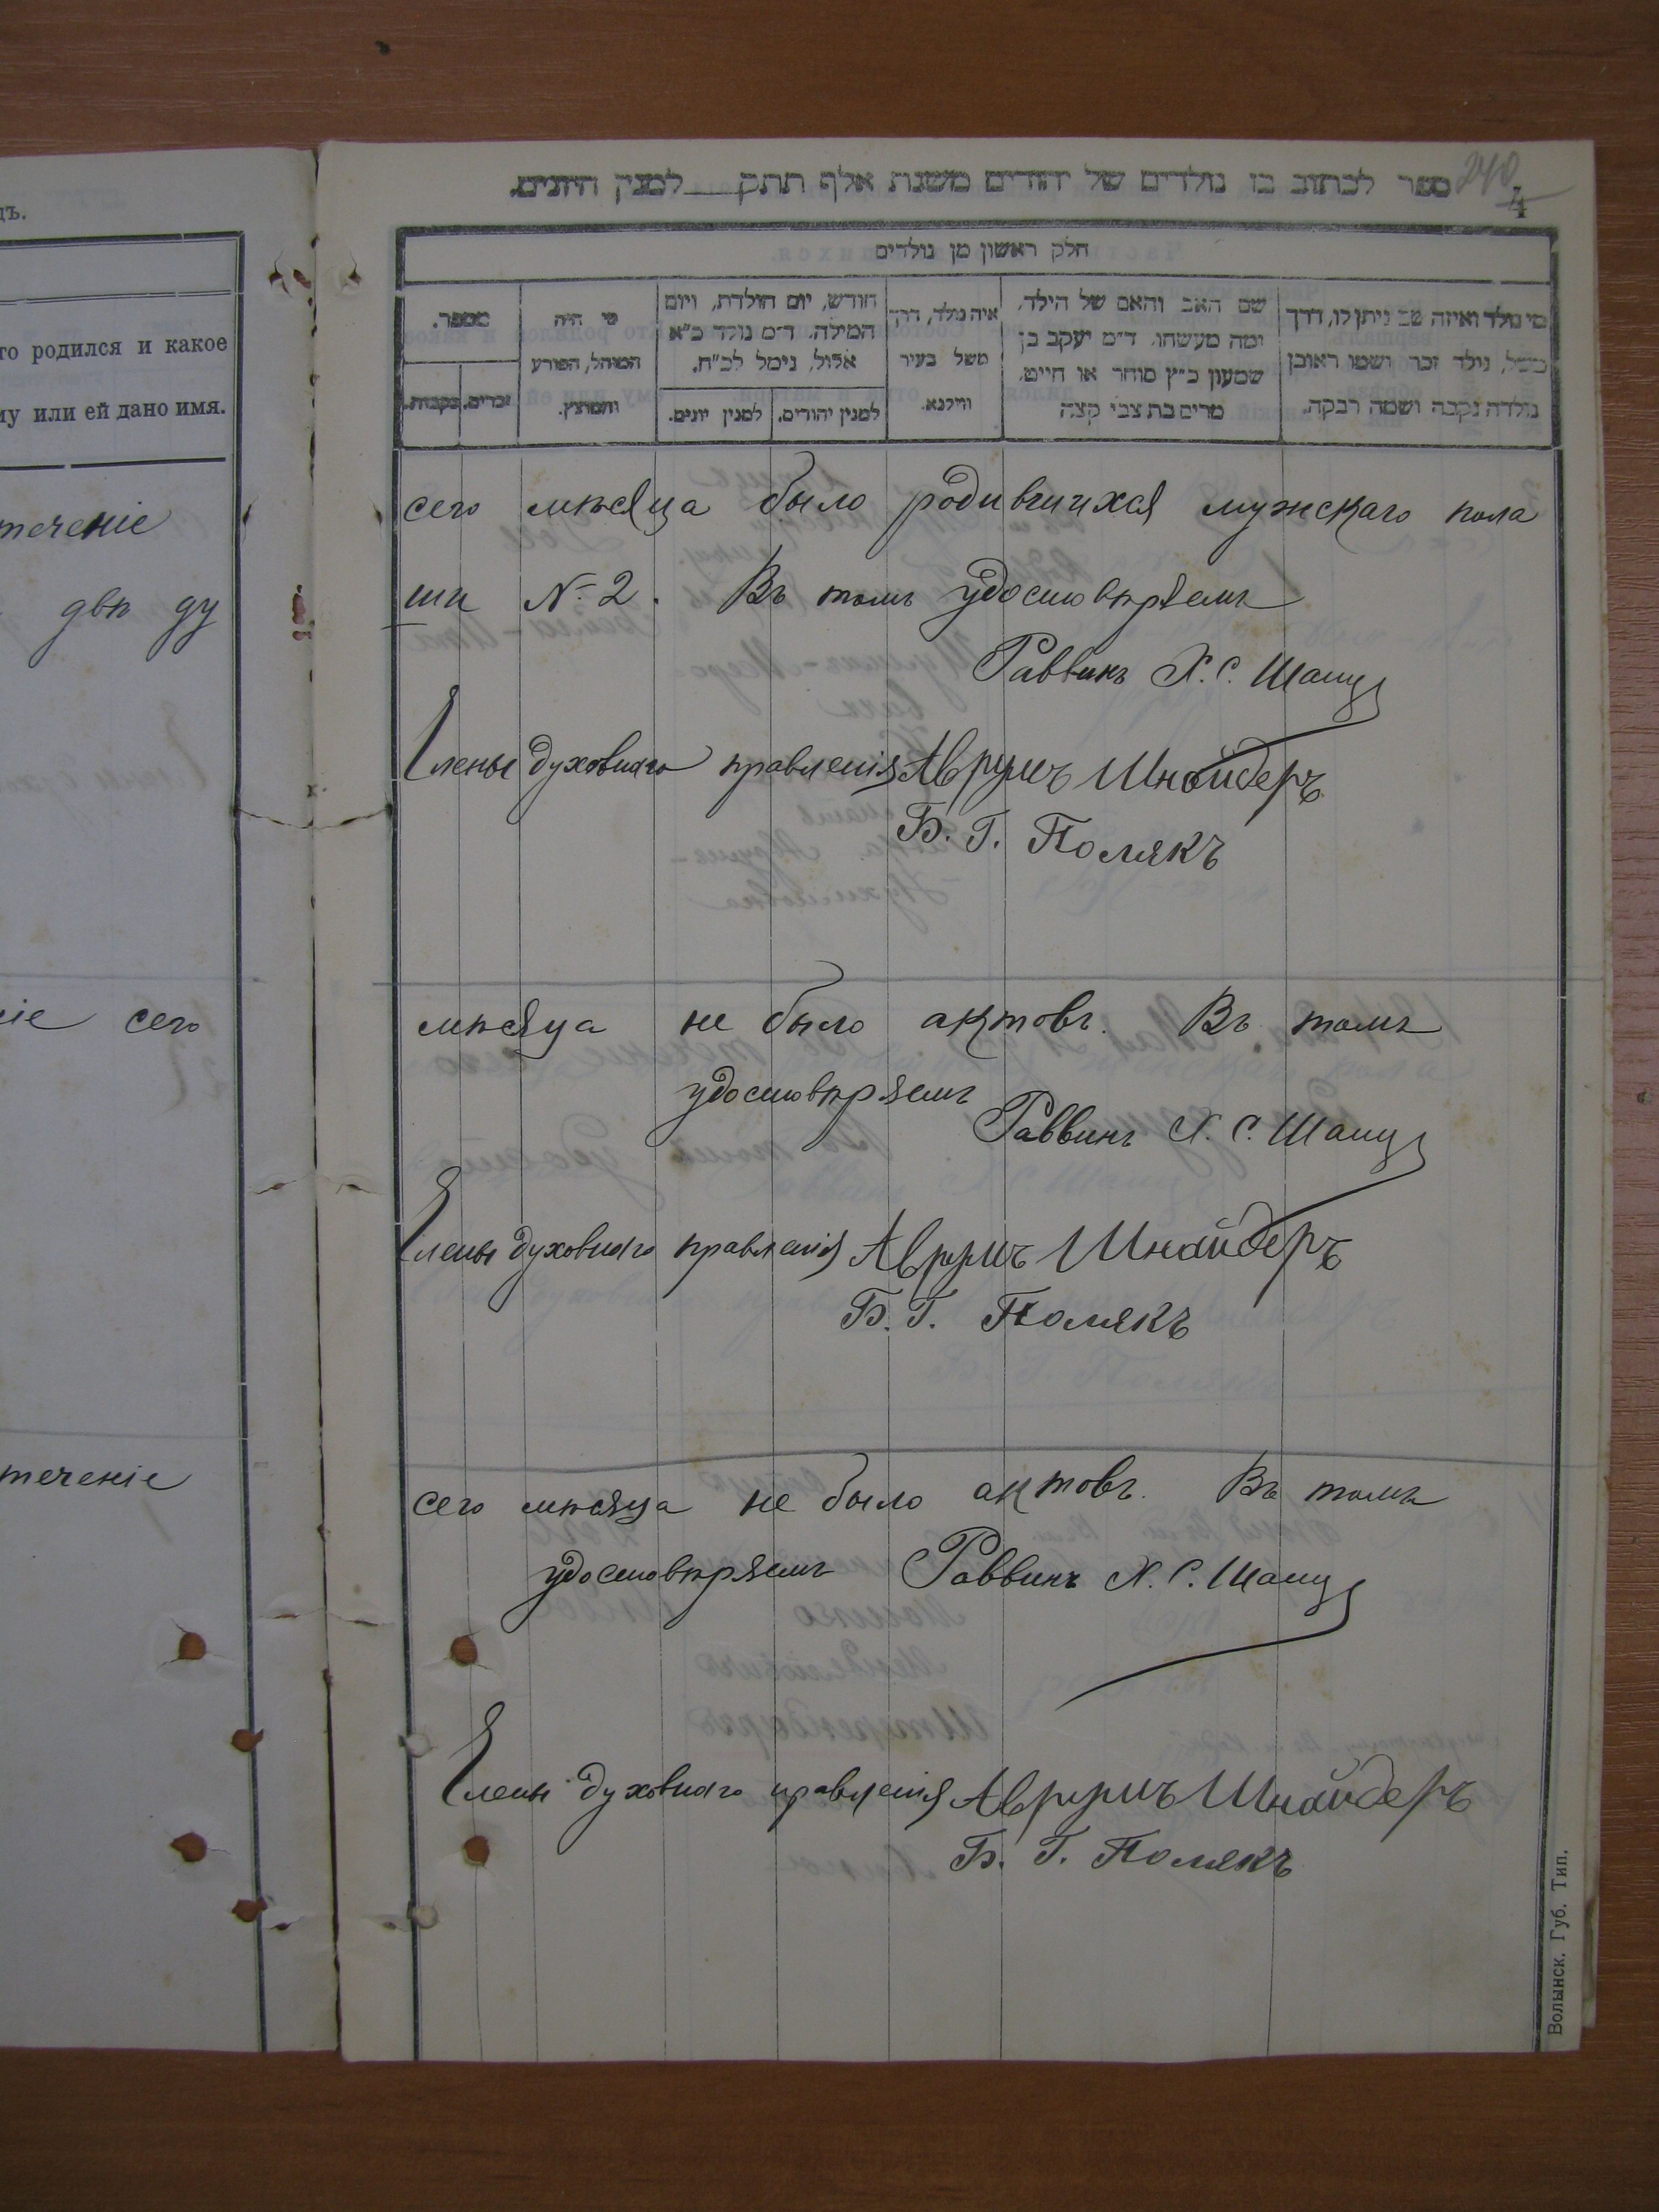 дъ.
то родился и какое
му или ей дано имя.
теченіе
двѣ ду
сего
теченіе
240
4
ספר לכתוב בו נולדים של יהודים משנת אלף תתק למנין היונים.
חלק ראשון מן נולדים
מי נולד ואיזה שם ניתן לו, דרך
משל, נולד זכר ושמו ראובן
נולדה נקבה ושמה רבקה.
שם האב והאם של הילד,
ומה מעשהו. ד״מ יעקב בן
שמעון כ״ץ סוחר או חייט,
מרים בת צבי קצה
איה נולד, דרך
משל בעיר
ווילנא.
חודש, יום הולדת, ויום
המילה. ד״מ נולד כ״א
אלול, נימל לכ״ח.
למנין יהודים.
למנין יונים.
מי היה
המוהל, הפורע
והמוצץ.
מספר.
זכרים.
נקבות.
сего мѣсяца было родившихся мужскаго пола
ши № 2. Въ томъ удостовѣряемъ
Раввинъ Х. С. Шапиз
Члены духовнаго правленія Аврумъ Шнайдеръ
Б. Г. Полякъ
мѣсяца не было актовъ. Въ томъ
удостовѣряемъ
Раввинъ Х. С.
Члены духовнаго правленія Аврумъ Шнайдеръ
Б. Г. Полякъ
сего мѣсяца не было актовъ. Въ томъ
удостовѣряемъ Раввинъ Х. С.
Члены духовнаго правленія Аврумъ Шнайдеръ
Б. Г. Полякъ
Волынск. Губ. Тип.